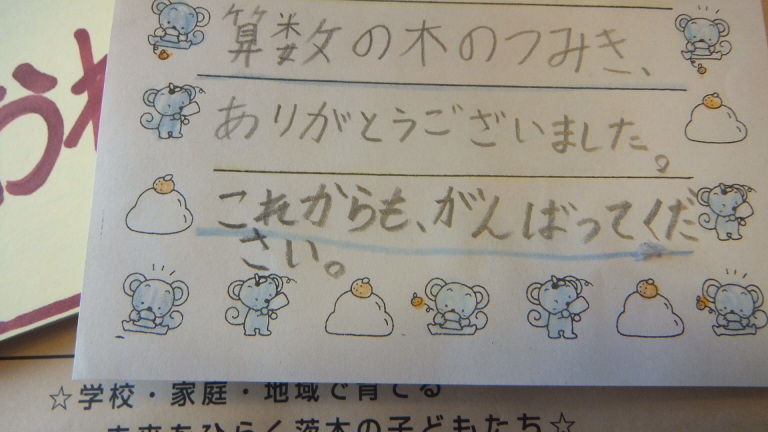 算数の木のつみき、
ありがとうございました。
これからも、がんばってくだ
さい。
うれ
☆学校・家庭・地域で育てる
未来をひらく茨木の子どもたち☆